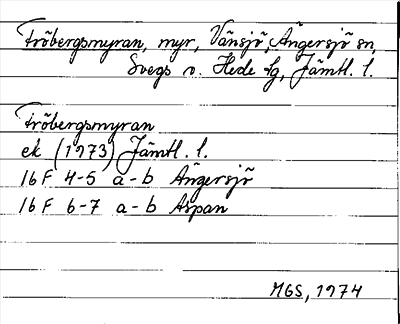 Fröbergsmyran, myr, Vänsjö, Ängersjö sn,
Svegs o. Hede tg, Jämtl. l.
Fröbergsmyran
ek (1973) Jämtl. l.
16F 4-5 a-b Ängersjö
16F 6-7 a-b Aspan
MGS, 1974